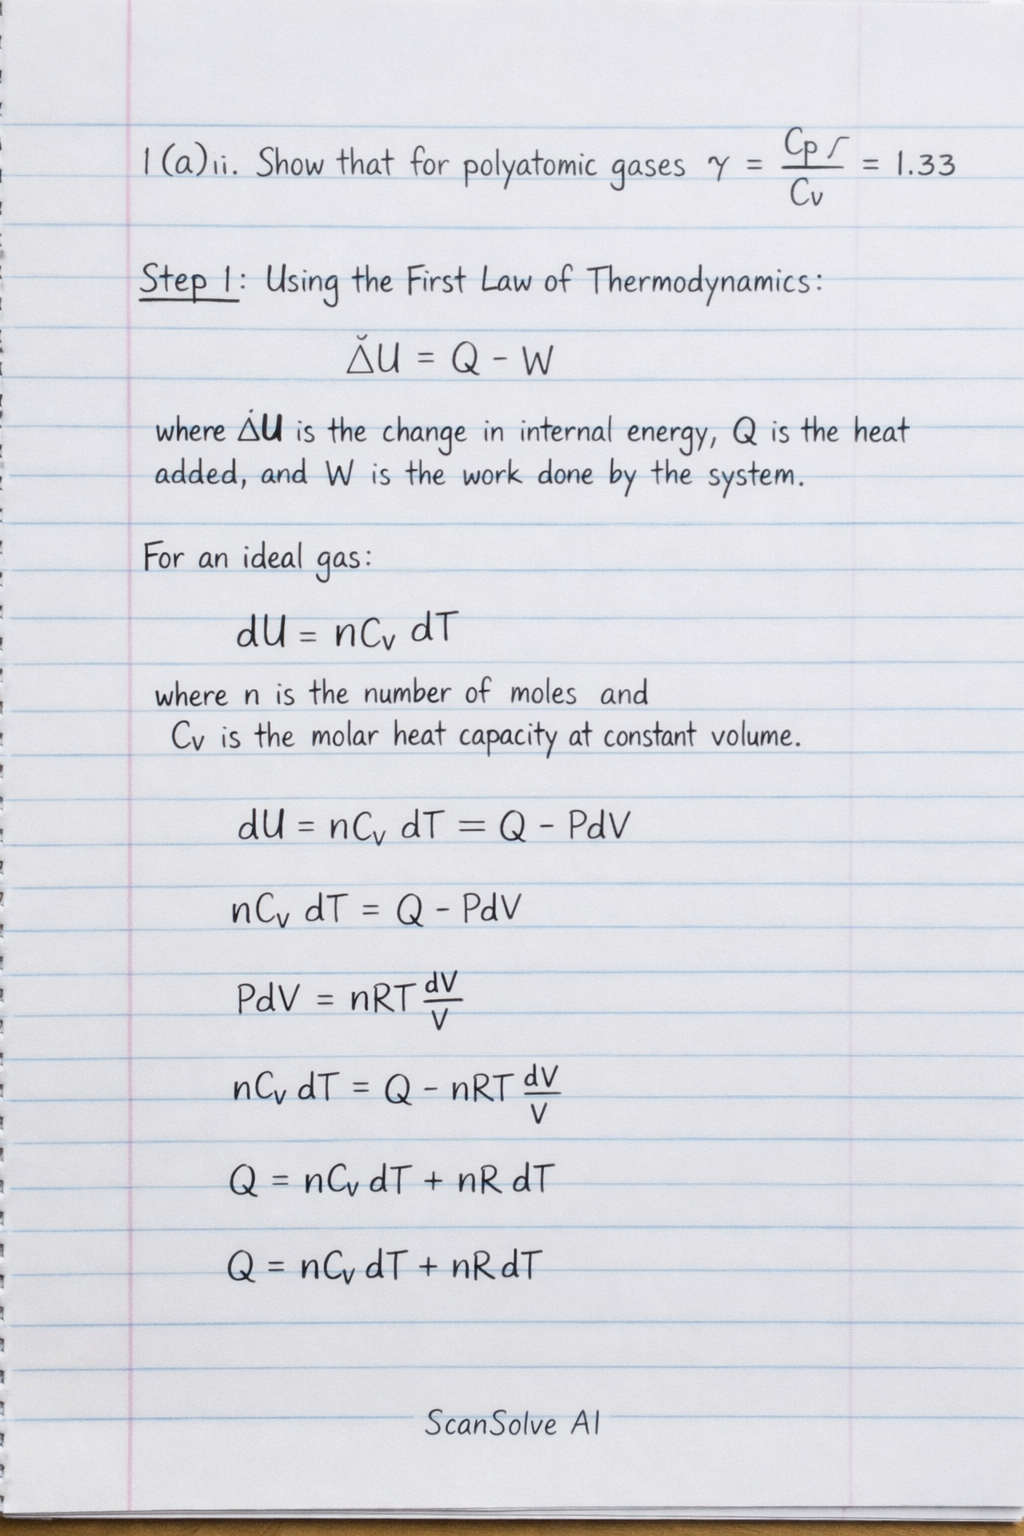 1(a)ii. Show that for polyatomic gases γ = Cp/Cv = 1.33
Step 1: Using the First Law of Thermodynamics:
ΔU = Q - W
where ΔU is the change in internal energy, Q is the heat
added, and W is the work done by the system.
For an ideal gas:
dU = nCv dT
where n is the number of moles and
Cv is the molar heat capacity at constant volume.
dU = nCv dT = Q - PdV
nCv dT = Q - PdV
PdV = nRT dV/V
nCv dT = Q - nRT dV/V
Q = nCv dT + nR dT
Q = nCv dT + nR dT
ScanSolve AI